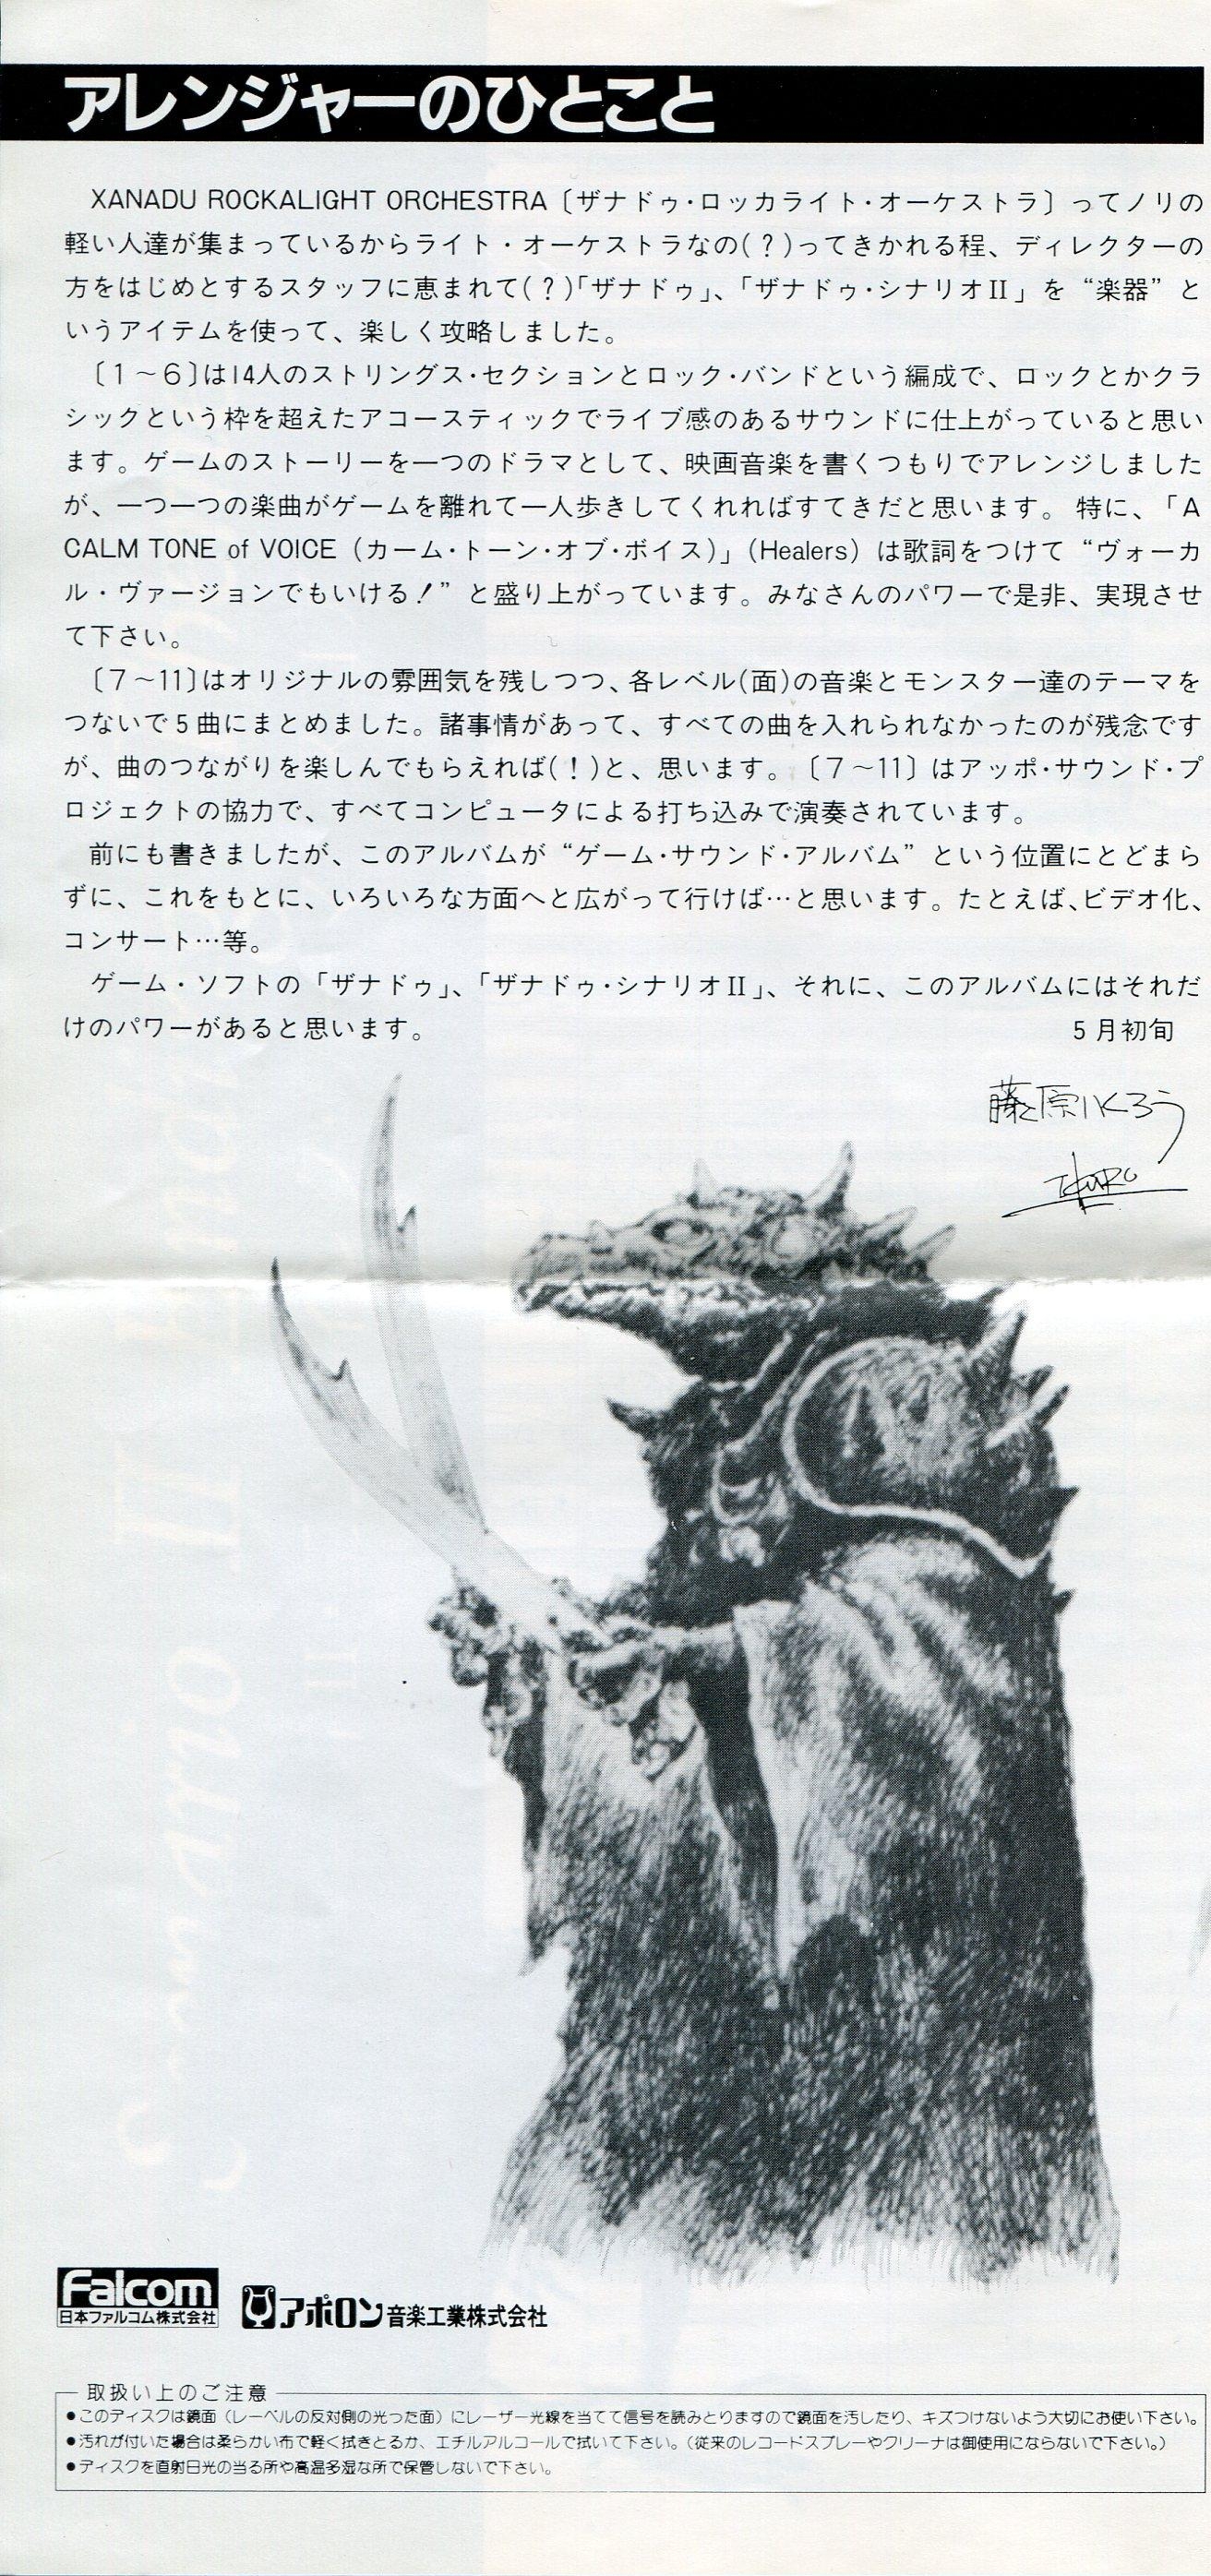 アレンジャーのひとこと
XANADU ROCKALIGHT ORCHESTRA〔ザナドゥ・ロッカライト・オーケストラ〕ってノリの
軽い人達が集まっているからライト・オーケストラなの(？)ってきかれる程、ディレクターの
方をはじめとするスタッフに恵まれて(？)「ザナドゥ」、「ザナドゥ・シナリオII」を“楽器”と
いうアイテムを使って、楽しく攻略しました。
〔1～6〕は14人のストリングス・セクションとロック・バンドという編成で、ロックとかクラ
シックという枠を超えたアコースティックでライブ感のあるサウンドに仕上がっていると思い
ます。ゲームのストーリーを一つのドラマとして、映画音楽を書くつもりでアレンジしました
が、一つ一つの楽曲がゲームを離れて一人歩きしてくれればすてきだと思います。特に、「A
CALM TONE of VOICE（カーム・トーン・オブ・ボイス）」（Healers）は歌詞をつけて“ヴォーカ
ル・ヴァージョンでもいける！”と盛り上がっています。みなさんのパワーで是非、実現させ
て下さい。
〔7～11〕はオリジナルの雰囲気を残しつつ、各レベル(面)の音楽とモンスター達のテーマを
つないで5曲にまとめました。諸事情があって、すべての曲を入れられなかったのが残念です
が、曲のつながりを楽しんでもらえれば(！)と、思います。〔7～11〕はアッポ・サウンド・プ
ロジェクトの協力で、すべてコンピュータによる打ち込みで演奏されています。
前にも書きましたが、このアルバムが“ゲーム・サウンド・アルバム”という位置にとどまら
ずに、これをもとに、いろいろな方面へと広がって行けば…と思います。たとえば、ビデオ化、
コンサート…等。
ゲーム・ソフトの「ザナドゥ」、「ザナドゥ・シナリオII」、それに、このアルバムにはそれだ
けのパワーがあると思います。
5月初旬
藤原いくろう
IKURO
Falcom
日本ファルコム株式会社
アポロン音楽工業株式会社
取扱い上のご注意
●このディスクは鏡面（レーベルの反対側の光った面）にレーザー光線を当てて信号を読みとりますので鏡面を汚したり、キズつけないよう大切にお使い下さい。
●汚れが付いた場合は柔らかい布で軽く拭きとるか、エチルアルコールで拭いて下さい。（従来のレコードスプレーやクリーナは御使用にならないで下さい。）
●ディスクを直射日光の当る所や高温多湿な所で保管しないで下さい。